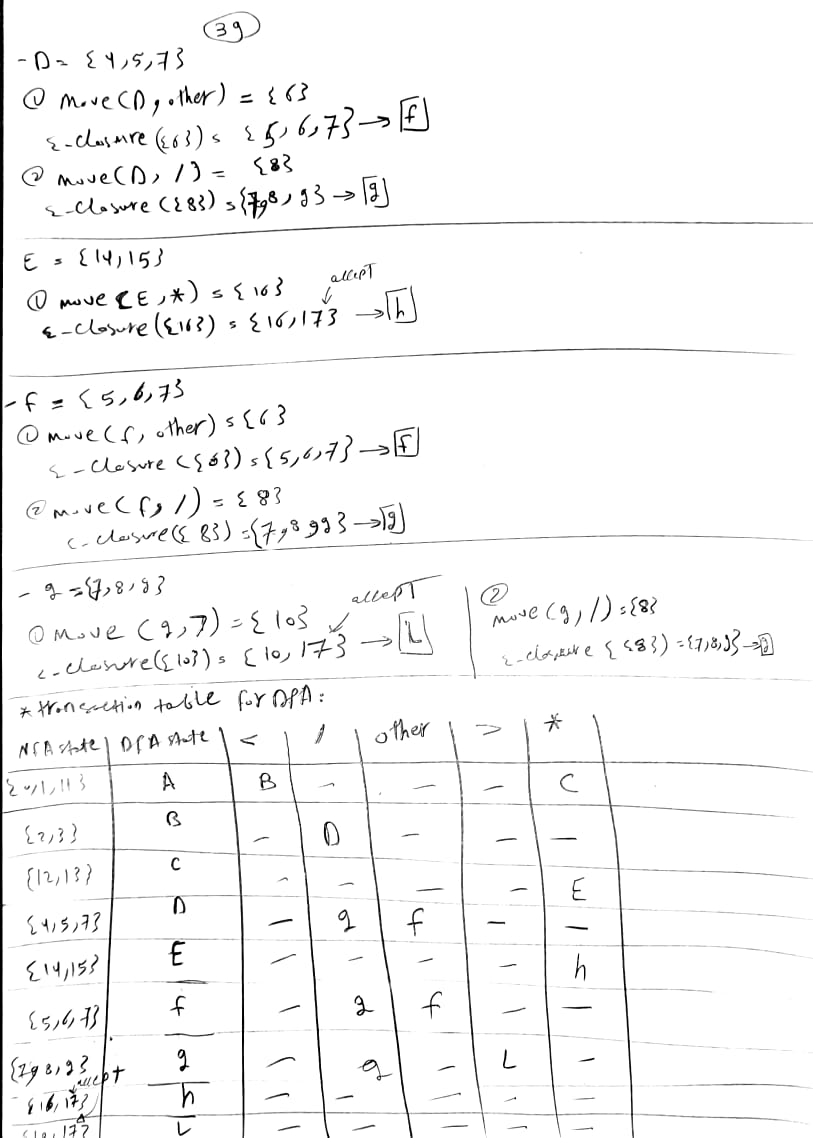 39
- D = {4,5,7}
① move(D, other) = {6}
ε-closure({6}) = {5,6,7} → f
② move(D, /) = {8}
ε-closure({8}) = {7,8,9} → g
E = {14,15}
① move(E,*) = {16}
accept
ε-closure({16}) = {16,17} → h
- f = {5,6,7}
① move(f, other) = {6}
ε-closure({6}) = {5,6,7} → f
② move(f, /) = {8}
ε-closure({8}) = {7,8,9} → g
- g = {7,8,9}
① move(g,>) = {10}
accept
ε-closure({10}) = {10,17} → L
②
move(g,/) = {8}
ε-closure({8}) = {7,8,9} → g
* transaction table for DFA:
NFA state | DFA state | < | / | other | > | *
{0,1,11} A B - - - C
{2,3} B - D - - -
{12,13} C - - - - E
{4,5,7} D - g f - -
{14,15} E - - - - h
{5,6,7} f - g f - -
{7,8,9} g - g - L -
accept
{16,17} h - - - - -
{10,17} L - - - - -